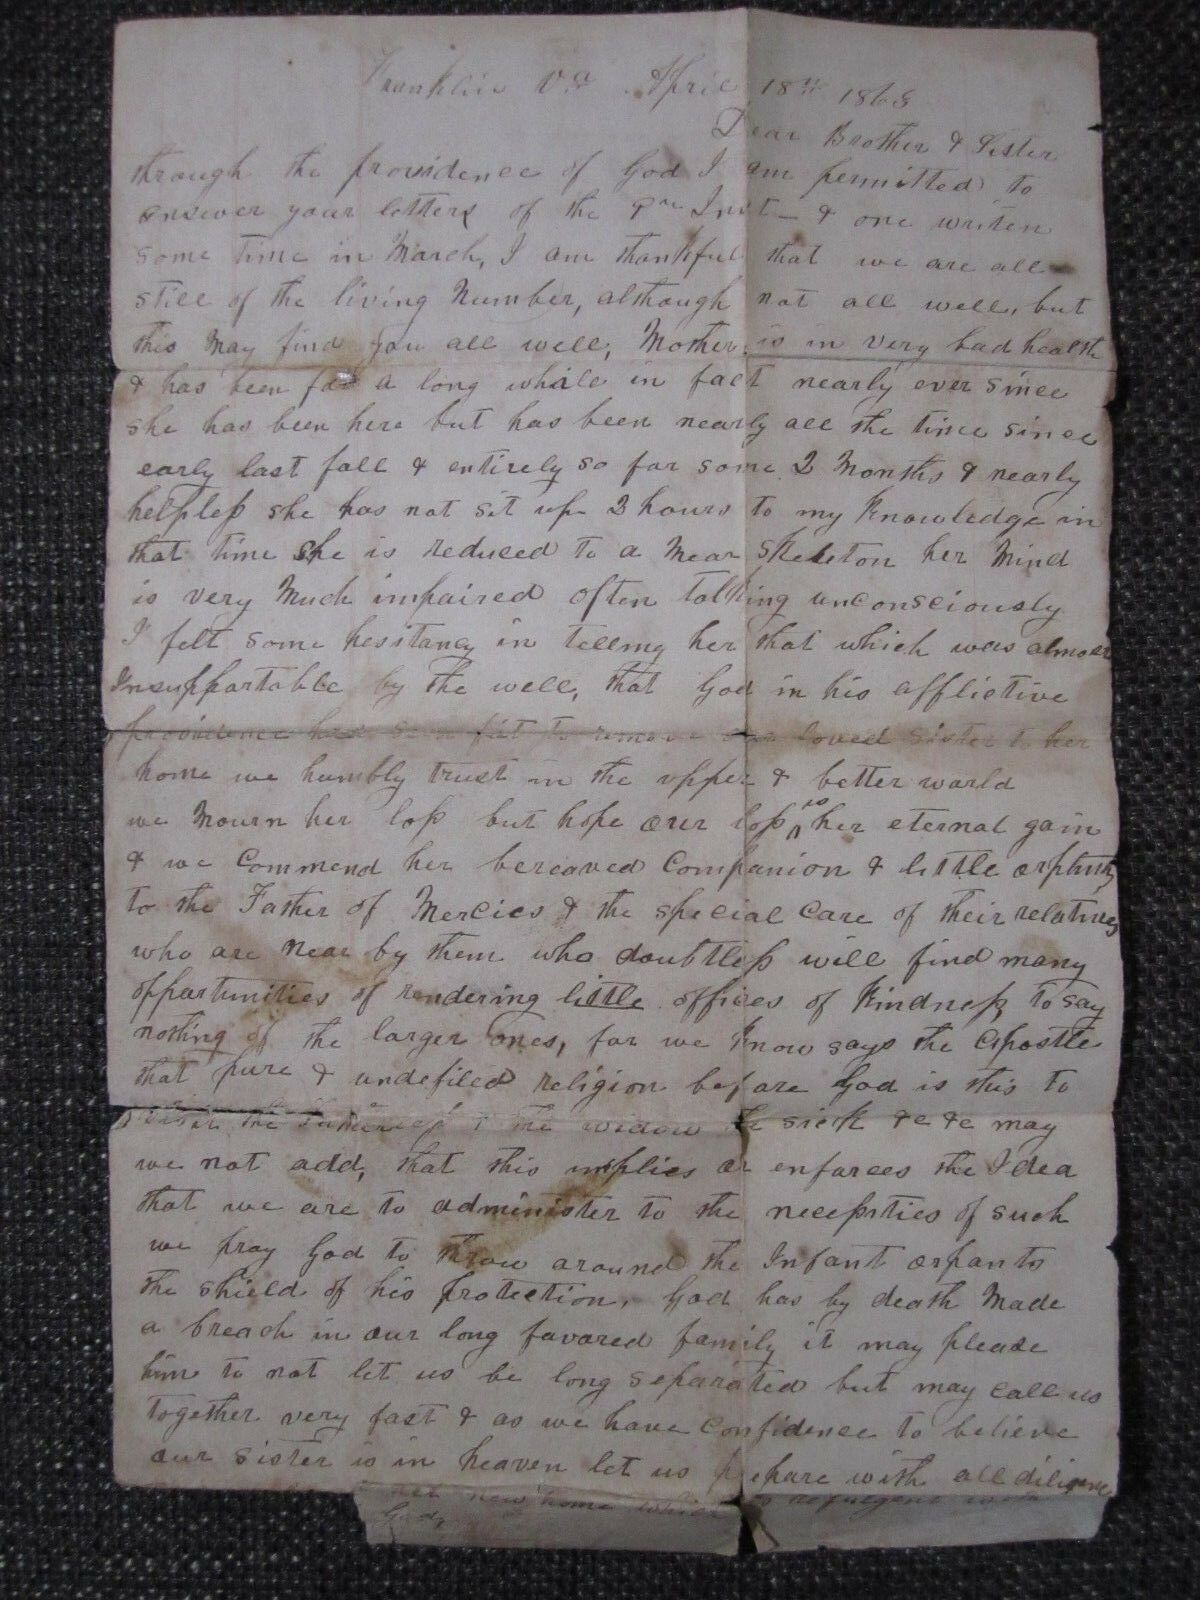 Franklin Va April 18th 186
Dear Brother & Sister
through the providence of God I am permitted to
answer your letters of the 9th Inst - & one writen
some time in March, I am thankful that we are all
still of the living Number, although not all well, but
this May find you all well, Mother is in very bad health
& has been for a long while in fact nearly ever since
she has been here but has been nearly all the time since
early last fall & entirely so for some 2 Months & nearly
helpless she has not sit up 2 hours to my Knowledge in
that time She is reduced to a Mear Skeleton her Mind
is very Much impaired often talking unconsciously
I felt some hesitancy in telling her that which was almost
Insupportable by the well, that God in his afflictive
providence has seen fit to remove our loved sister to her
home we humbly trust in the upper & better world
we Mourn her loss but hope our loss is her eternal gain
& we Commend her bereaved Companion & little orphants
to the Father of Mercies & the special Care of their relatives
who are Near by them who doubtless will find many
opportunities of rendering little offices of Kindness, to say
nothing of the larger ones, for we Know says the Apostle
that pure & undefiled religion before God is this to
visit the Fatherless & the widow the sick &c &c may
we not add, that this implies or enforces the Idea
that we are to administer to the necessities of such
we pray God to throw around the Infant orpants
the shield of his protection, God has by death Made
a breach in our long favored family it may please
him to not let us be long separated but may call us
together very fast & as we have Confidence to believe
our sister is in heaven let us prepare with all diligence
new home which is refulgent with
God,